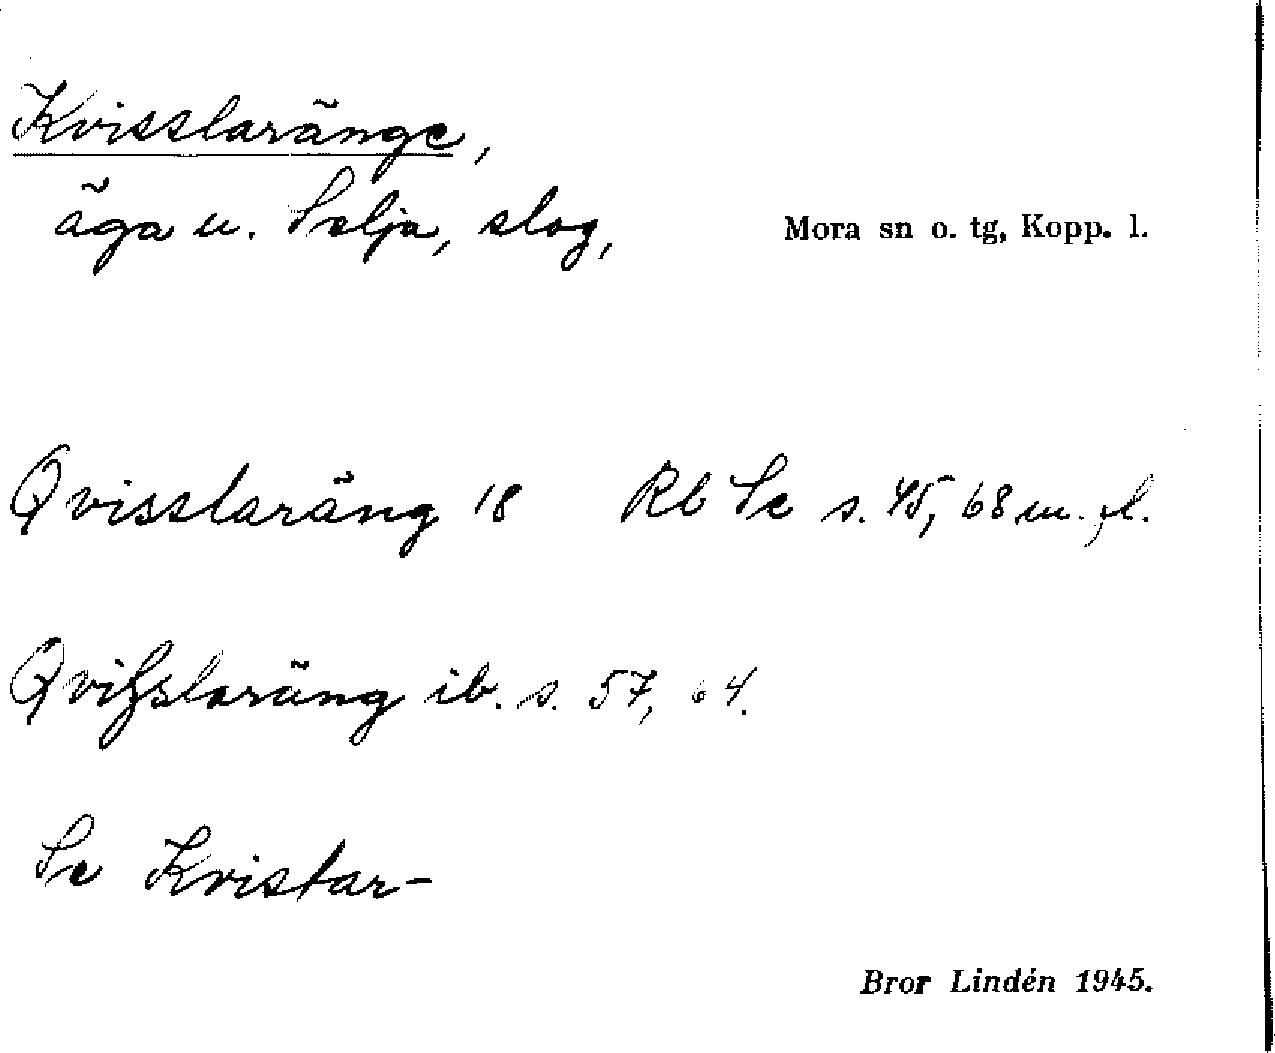 Kvisslaränge,
äga u. Selja, slog,
Mora sn o. tg, Kopp. l.
Qvisslaräng 18 Rb Se s. 45, 68 m. fl.
Qviſslaräng ib. s. 57, 64.
Se Kvistar-
Bror Lindén 1945.